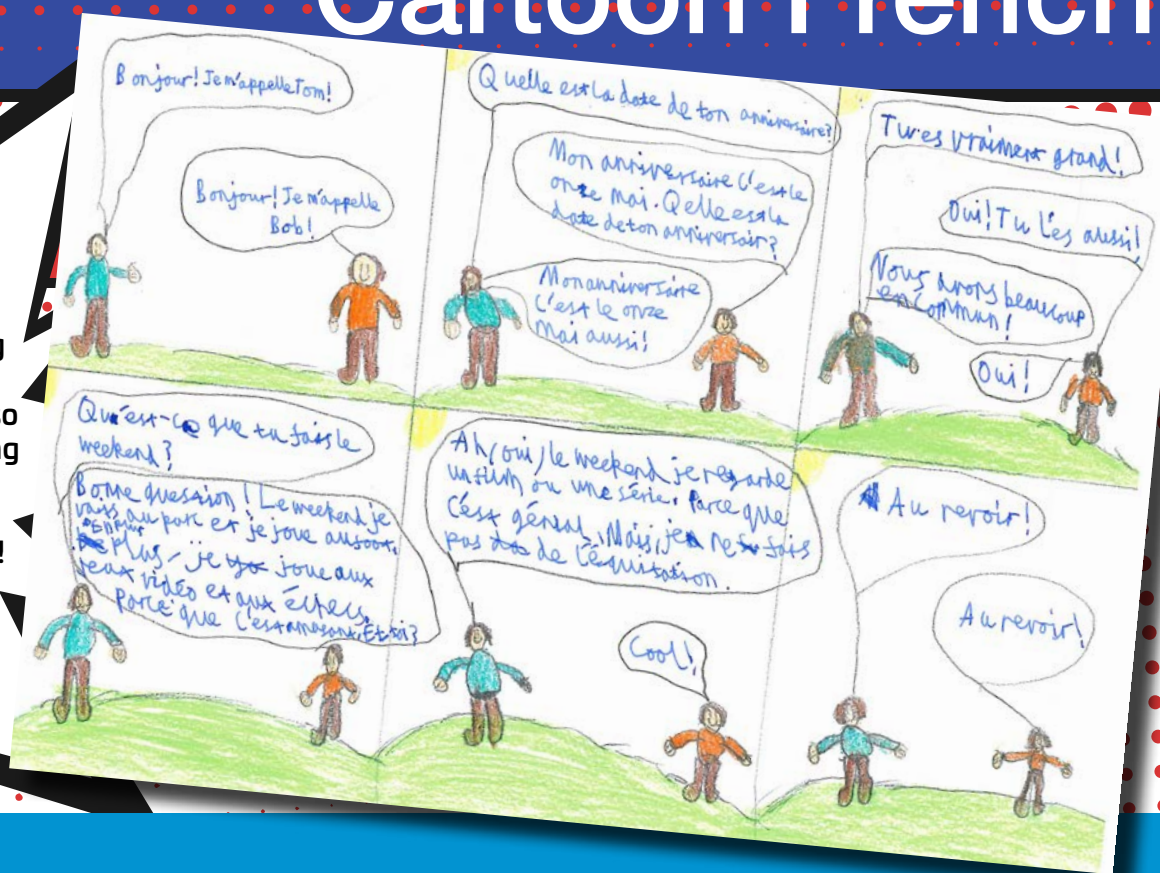 Cartoon French
Bonjour! Je m'appelle Tom!
Bonjour! Je m'appelle
Bob!
Quelle est la date de ton anniversaire?
Mon anniversaire c'est le
onze mai. Qelle est la
date de ton anniversair?
Mon anniversaire
c'est le onze
mai aussi!
Tu es vraiment grand!
Oui! Tu l'es aussi!
Nous avons beaucoup
en commun!
Oui!
Qu'est-ce que tu fais le
weekend?
Bonne question! Le weekend je
vais au parc et je joue au foot.
En plus, je joue aux
jeux vidéo et aux échecs,
parce que c'est amusant. Et toi?
Ah, oui, le weekend je regarde
un film ou une série. Parce que
c'est génial. Mais, je ne fais
pas de l'équitation.
Cool!
Au revoir!
Au revoir!
so
!